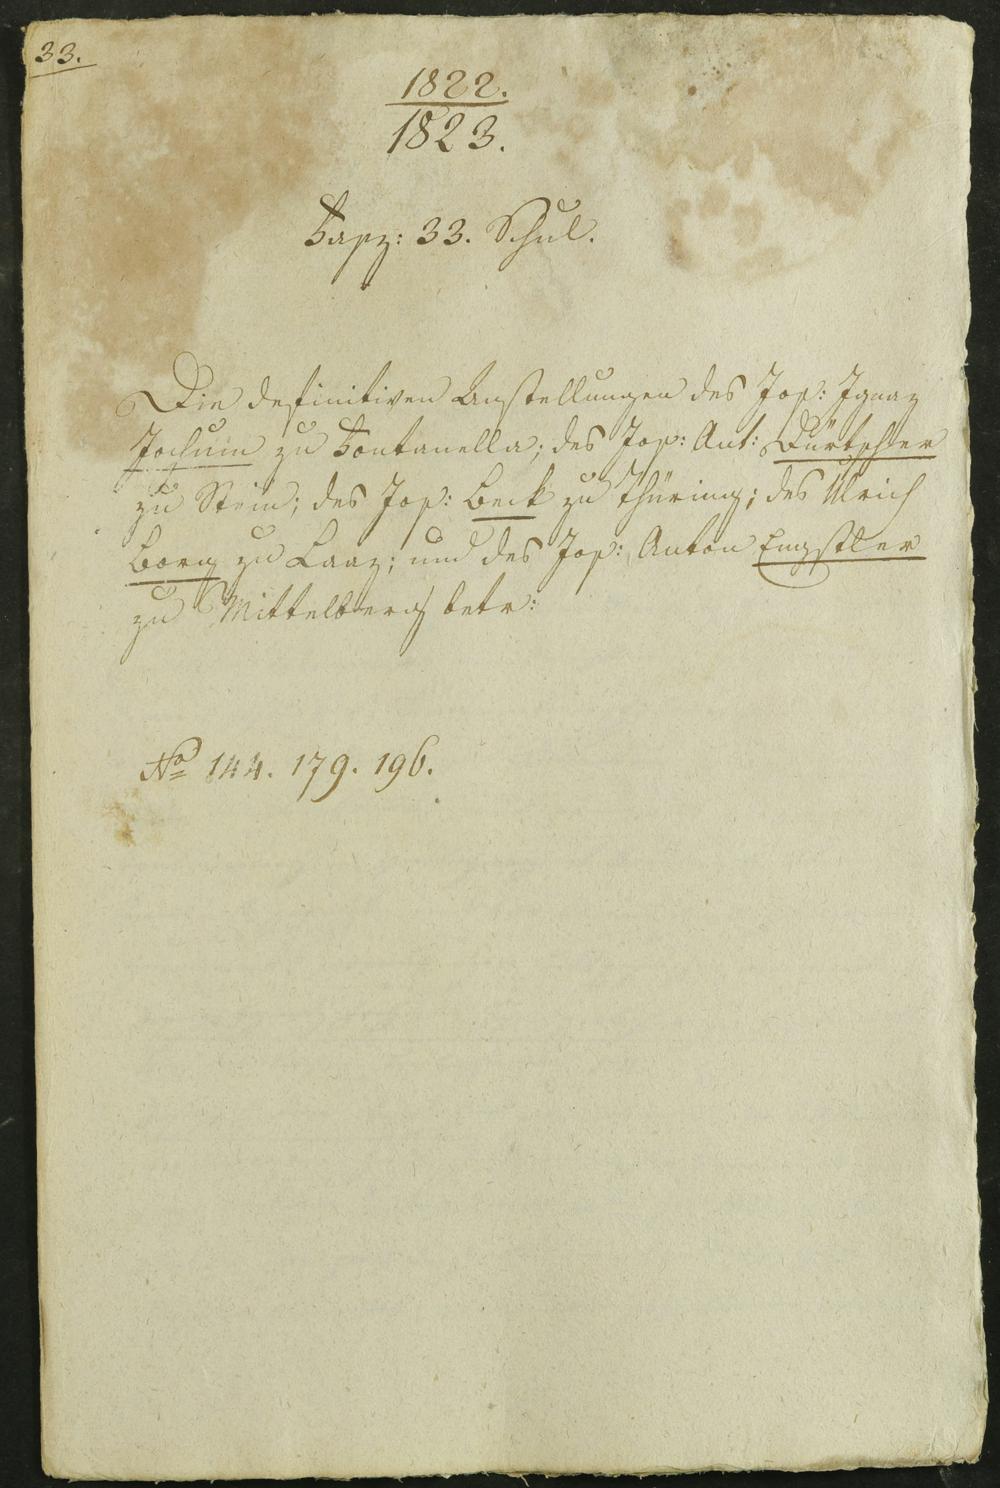 33.
1822.
1823.
Fasz: 33. Schul.
Die definitiven Anstellungen des Jos: Ignaz
Jochum zu Fontanella; des Jos: Ant: Dürtscher
zu Stein; des Jos: Beck zu Thüring; des Ulrich
Borg zu Laaz; und des Jos: Anton Engstler
zu Mittelberg betr:
No 144. 179. 196.